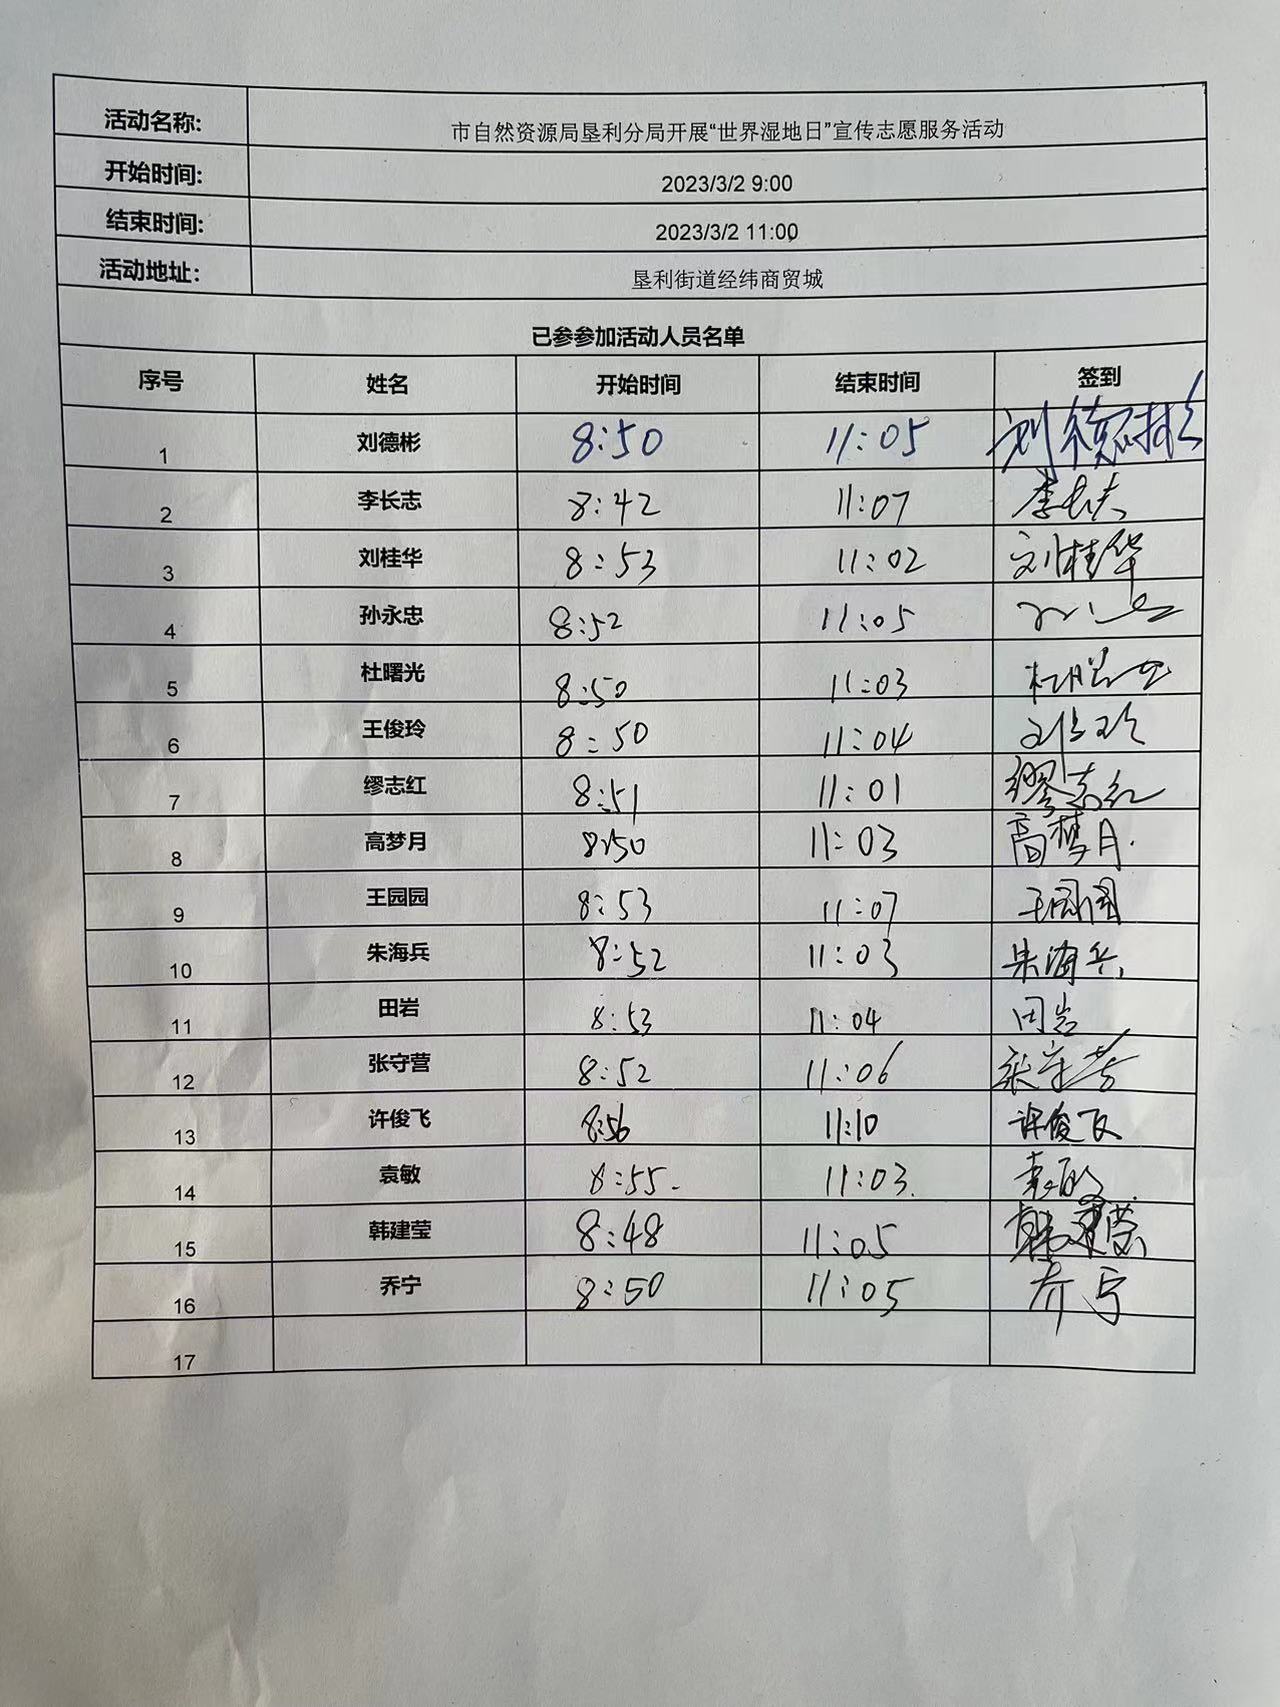 活动名称: 市自然资源局垦利分局开展“世界湿地日”宣传志愿服务活动
开始时间: 2023/3/2 9:00
结束时间: 2023/3/2 11:00
活动地址: 垦利街道经纬商贸城
已参参加活动人员名单
序号 姓名 开始时间 结束时间 签到
1 刘德彬 8:50 11:05 刘德彬
2 李长志 8:42 11:07 李长志
3 刘桂华 8:53 11:02 刘桂华
4 孙永忠 8:52 11:05
5 杜曙光 8:50 11:03
6 王俊玲 8:50 11:04
7 缪志红 8:51 11:01 缪志红
8 高梦月 8:50 11:03 高梦月.
9 王园园 8:53 11:07 王园园
10 朱海兵 8:52 11:03 朱海兵
11 田岩 8:53 11:04 田岩
12 张守营 8:52 11:06 张守营
13 许俊飞 8:56 11:10 许俊飞
14 袁敏 8:55 11:03 袁敏
15 韩建莹 8:48 11:05 韩建莹
16 乔宁 8:50 11:05 乔宁
17